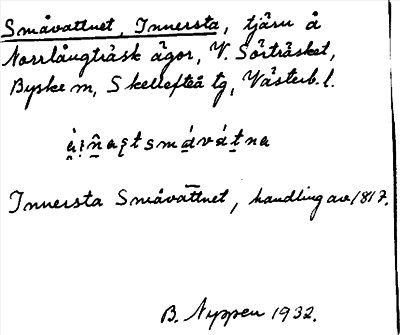 Småvattnet, Innersta, tjärn å
Norrlångträsk ägor, V. Sörträsket,
Byske sn, Skellefteå tg, Västerb. l.
Innersta Småvattnet, handling av 1817.
B. Nyppen 1932.